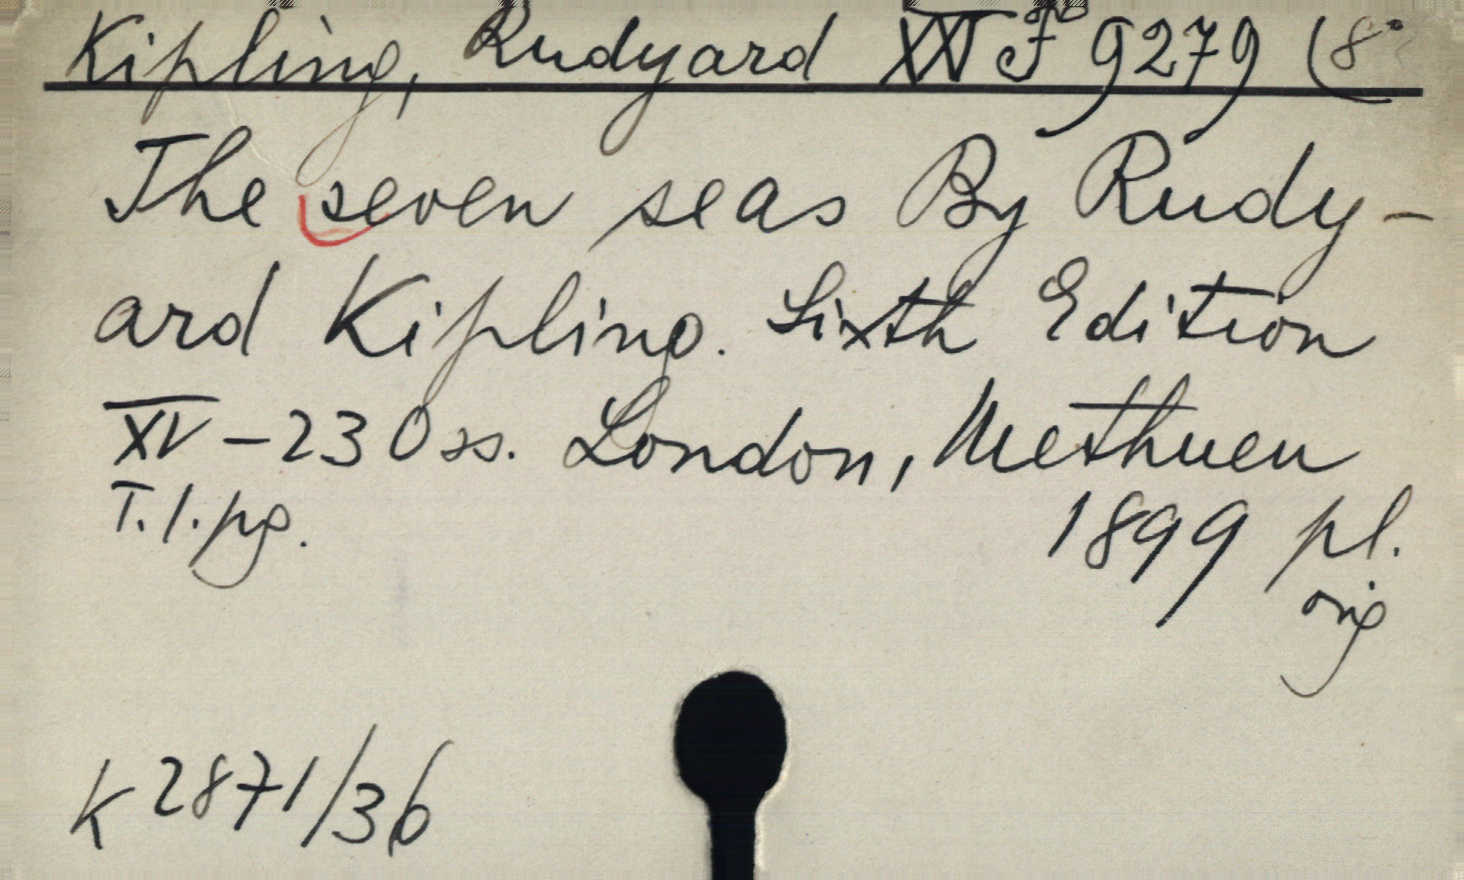 Kipling, Rudyard XXI F 9279 (8°
The seven seas By Rudy-
ard Kipling. Sixth Edition
XV-230 ss. London, Methuen
T.l.pg. 1899 pl.
orig
K 2871/36